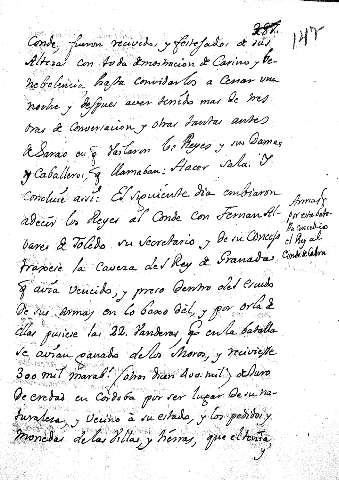 287.
147
Conde, fueron recividos y festejados de sus
Altezas con toda demostracion de Cariño, y be-
nebolencia, hasta convidarlos a Cenar una
noche y despues aver tenido mas de tres
oras de Conversacion, y otras tantas antes
de Sarao en q. Vailaron los Reyes y sus Damas
y Caballeros q. llamaban: Hacer Sala. Y
concluie assi: El siguiente dia embiaron
a decir los Reyes al Conde con Fernan Al-
vares de Toledo su Secretario, y de su Consejo
trajese la Caveza del Rey de Granada
q. avia Vencido, y preso dentro del escudo
de sus Armas en lo baxo del, y por orla de
ellas pusiese las 22. Vanderas q. en la batalla
se avian ganado de los Moros, y reciviesse
300 mil marab.s (otros dian 400. mil) de Juro
de eredad en Cordoba por ser lugar de su na-
turaleza, y Vecino à su estado, y los pedidos y
monedas de las Villas, y tierras, que el tenia,
y
Armas q.
por esta bata-
lla concedio
el Rey al
Conde de Cabra